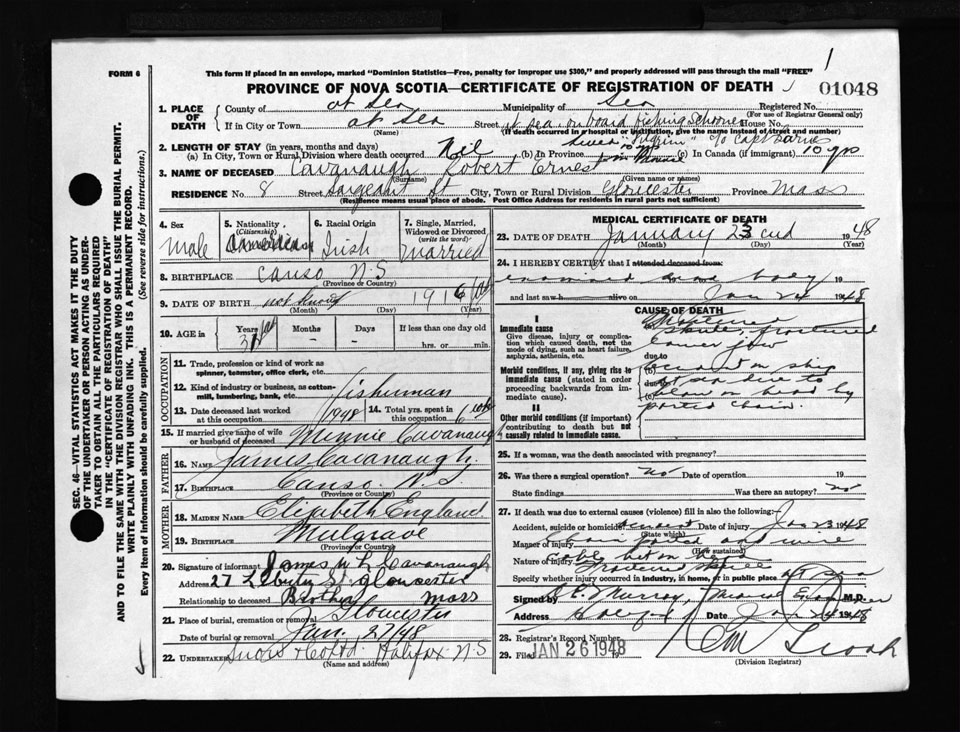 FORM 6
This form if placed in an envelope, marked "Dominion Statistics—Free, penalty for improper use $300," and properly addressed will pass through the mail "FREE"
1
PROVINCE OF NOVA SCOTIA—CERTIFICATE OF REGISTRATION OF DEATH
01048
1. PLACE OF DEATH
County of at Sea Municipality of Sea Registered No.
(For use of Registrar General only)
If in City or Town at Sea Street at sea on board fishing Schooner House No.
(Name) (If death occurred in a hospital or institution, give name instead of street and number)
"Pilgrim" c/o Capt
2. LENGTH OF STAY (in years, months and days)
(a) In City, Town or Rural Division where death occurred Nil (b) In Province (c) In Canada (if immigrant) 10 yrs
3. NAME OF DECEASED Cavanaugh Robert Ernest
(Surname) (Given name or names)
RESIDENCE No. 8 Street Sargeant St City, Town or Rural Division Gloucester Province Mass
(Residence means usual place of abode. Post Office Address for residents in rural parts not sufficient)
4. Sex Male
5. Nationality (Citizenship) American
6. Racial Origin Irish
7. Single, Married, Widowed or Divorced (write the word) Married
8. BIRTHPLACE Canso N.S
(Province or Country)
9. DATE OF BIRTH not known 1916
(Month) (Day) (Year)
10. AGE in Years Months Days If less than one day old
31 - - hrs. or min.
OCCUPATION
11. Trade, profession or kind of work as spinner, teamster, office clerk, etc.
12. Kind of industry or business, as cotton-mill, lumbering, bank, etc. fisherman
13. Date deceased last worked at this occupation 1948 14. Total yrs. spent in this occupation
15. If married give name of wife or husband of deceased Minnie Cavanaugh
FATHER
16. NAME James Cavanaugh.
17. BIRTHPLACE Canso. N.S
(Province or Country)
MOTHER
18. MAIDEN NAME Elizabeth England
19. BIRTHPLACE Mulgrave
(Province or Country)
20. Signature of informant James Cavanaugh
Address 27 St Gloucester
Relationship to deceased Brother Mass
21. Place of burial, cremation or removal Gloucester
Date of burial or removal Jan. 27/48
22. UNDERTAKER Snow & Co Ltd. Halifax N.S
(Name and address)
MEDICAL CERTIFICATE OF DEATH
23. DATE OF DEATH January 23 1948
(Month) (Day) (Year)
24. I HEREBY CERTIFY that I attended deceased from:
examined dead body 19
and last saw h alive on Jan 24 1948
CAUSE OF DEATH
I
Immediate cause
Give disease, injury or complication which caused death, not the mode of dying, such as heart failure, asphyxia, asthenia, etc.
Morbid conditions, if any, giving rise to immediate cause (stated in order proceeding backwards from immediate cause).
II
Other morbid conditions (if important) contributing to death but not causally related to immediate cause.
(a) Fractured skull, fractured
lower jaw
due to
(b) accident on ship
due to at sea due to
(c) blow on head by
parted chain.
25. If a woman, was the death associated with pregnancy?
26. Was there a surgical operation? no Date of operation 19
State findings Was there an autopsy? no
27. If death was due to external causes (violence) fill in also the following:—
Accident, suicide or homicide? accident Date of injury Jan 23 1948
(State which)
Manner of injury chain parted and wire
(How sustained)
cable hit on head
Nature of injury fractured skull
Specify whether injury occurred in industry, in home, or in public place at sea
Signed by Murray, Medical Examiner M.D.
Address Halifax Date Jan 26 1948
28. Registrar's Record Number
29. Filed JAN 26 1948 19
(Division Registrar)
SEC. 46—VITAL STATISTICS ACT MAKES IT THE DUTY
OF THE UNDERTAKER OR PERSON ACTING AS UNDER-
TAKER TO OBTAIN ALL THE PARTICULARS REQUIRED
IN THE "CERTIFICATE OF REGISTRATION OF DEATH"
AND TO FILE THE SAME WITH THE DIVISION REGISTRAR WHO SHALL ISSUE THE BURIAL PERMIT.
WRITE PLAINLY WITH UNFADING INK. THIS IS A PERMANENT RECORD.
Every item of information should be carefully supplied. (See reverse side for instructions.)